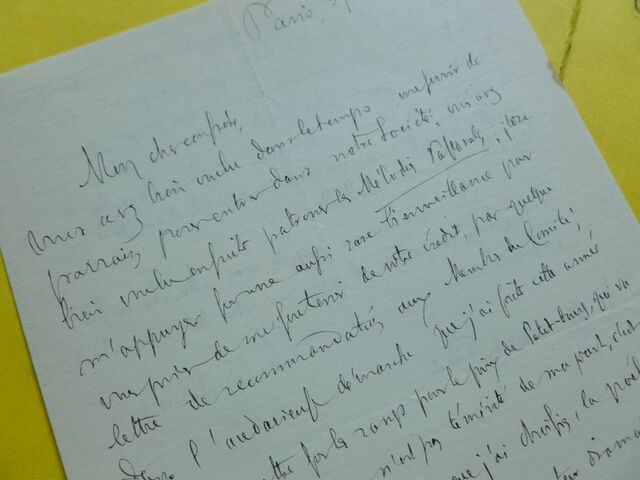 Paris,
Mon cher confrère,
Vous avez bien voulu dans le temps me servir de
parrain pour entrer dans notre Société; vous avez
bien voulu ensuite patroner les Mélodies Pastorales; j'ose
m'appuyer sur une aussi rare bienveillance pour
vous prier de me soutenir de votre crédit, par quelque
lettre de recommandation aux Membres du Comité,
dans l'audacieuse démarche que j'ai faite cette année
sur les rangs pour le prix de qui va
n'est pas témérité de ma part, c'est
que j'ai choisi, la